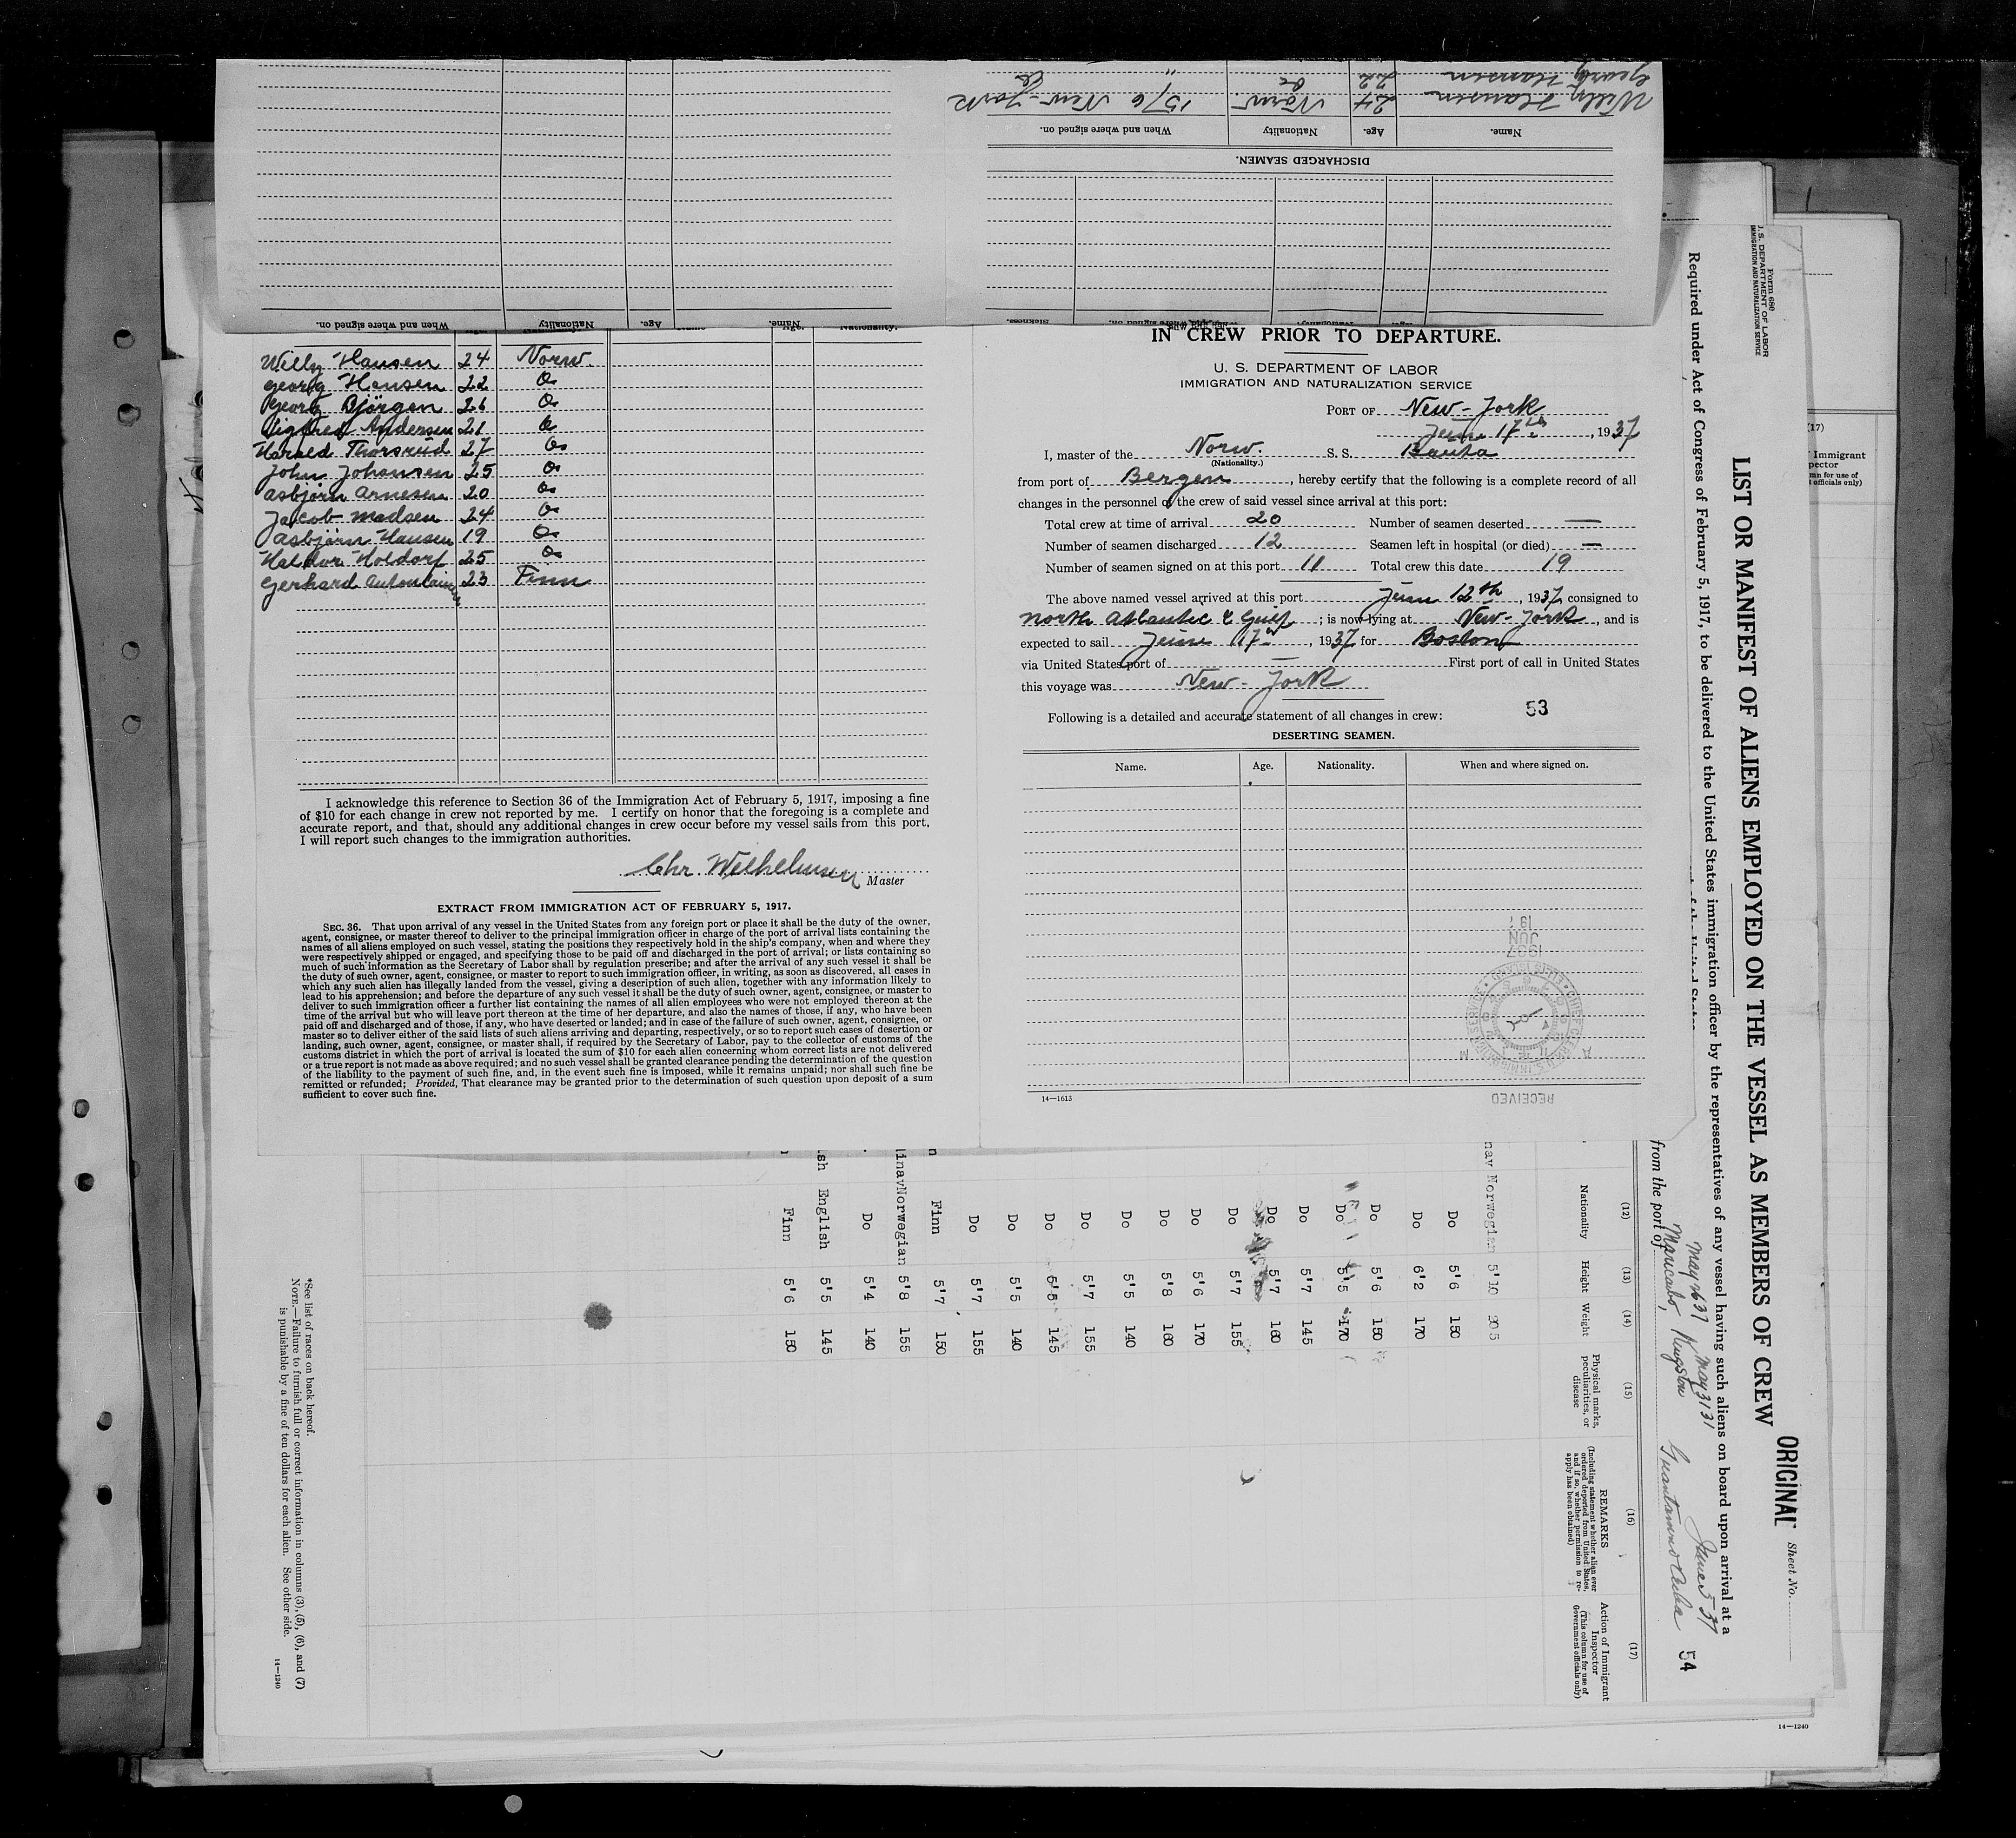 Willy Hansen 24 Norw. 15/6 New-York
Georg Hansen 22 do " do
Name. Age. Nationality When and where signed on.
DISCHARGED SEAMEN.
When and where signed on. Nationality Age. Name. Nationality.
Sickness. When and where signed on.
Willy Hansen 24 Norw.
Georg Hansen 22 Do
Georg Björgen 26 Do
Sigfred Andersen 21 Do
Harald Thorsrud 27 Do
John Johansen 25 Do
Asbjörn Arnesen 20 Do
Jacob Madsen 24 Do
Asbjörn Hansen 19 Do
Haldor Holdorf 25 Do
Gerhard 23 Finn
I acknowledge this reference to Section 36 of the Immigration Act of February 5, 1917, imposing a fine
of $10 for each change in crew not reported by me. I certify on honor that the foregoing is a complete and
accurate report, and that, should any additional changes in crew occur before my vessel sails from this port,
I will report such changes to the immigration authorities.
Chr. Wilhelmsen Master
EXTRACT FROM IMMIGRATION ACT OF FEBRUARY 5, 1917.
SEC. 36. That upon arrival of any vessel in the United States from any foreign port or place it shall be the duty of the owner,
agent, consignee, or master thereof to deliver to the principal immigration officer in charge of the port of arrival lists containing the
names of all aliens employed on such vessel, stating the positions they respectively hold in the ship's company, when and where they
were respectively shipped or engaged, and specifying those to be paid off and discharged in the port of arrival; or lists containing so
much of such information as the Secretary of Labor shall by regulation prescribe; and after the arrival of any such vessel it shall be
the duty of such owner, agent, consignee, or master to report to such immigration officer, in writing, as soon as discovered, all cases in
which any such alien has illegally landed from the vessel, giving a description of such alien, together with any information likely to
lead to his apprehension; and before the departure of any such vessel it shall be the duty of such owner, agent, consignee, or master to
deliver to such immigration officer a further list containing the names of all alien employees who were not employed thereon at the
time of the arrival but who will leave port thereon at the time of her departure, and also the names of those, if any, who have been
paid off and discharged and of those, if any, who have deserted or landed; and in case of the failure of such owner, agent, consignee, or
master so to deliver either of the said lists of such aliens arriving and departing, respectively, or so to report such cases of desertion or
landing, such owner, agent, consignee, or master shall, if required by the Secretary of Labor, pay to the collector of customs of the
customs district in which the port of arrival is located the sum of $10 for each alien concerning whom correct lists are not delivered
or a true report is not made as above required; and no such vessel shall be granted clearance pending the determination of the question
of the liability to the payment of such fine, and, in the event such fine is imposed, while it remains unpaid; nor shall such fine be
remitted or refunded; Provided, That clearance may be granted prior to the determination of such question upon deposit of a sum
sufficient to cover such fine.
IN CREW PRIOR TO DEPARTURE.
U. S. DEPARTMENT OF LABOR
IMMIGRATION AND NATURALIZATION SERVICE
PORT OF New-York
June 17th, 1937
I, master of the Norw. S. S. Bauta
(Nationality.)
from port of Bergen, hereby certify that the following is a complete record of all
changes in the personnel of the crew of said vessel since arrival at this port:
Total crew at time of arrival 20 Number of seamen deserted —
Number of seamen discharged 12 Seamen left in hospital (or died) —
Number of seamen signed on at this port 11 Total crew this date 19
The above named vessel arrived at this port June 12th, 1937, consigned to
North Atlantic & Gulf; is now lying at New-York, and is
expected to sail June 17th, 1937 for Boston
via United States port of — First port of call in United States
this voyage was New-York
Following is a detailed and accurate statement of all changes in crew: 53
DESERTING SEAMEN.
Name. Age. Nationality. When and where signed on.
14—1613
RECEIVED
1937
JUN
Form 680
U. S. DEPARTMENT OF LABOR
IMMIGRATION AND NATURALIZATION SERVICE
ORIGINAL Sheet No.
LIST OR MANIFEST OF ALIENS EMPLOYED ON THE VESSEL AS MEMBERS OF CREW
Required under Act of Congress of February 5, 1917, to be delivered to the United States immigration officer by the representatives of any vessel having such aliens on board upon arrival at a
May 3131 June 5 37
from the port of Maracaibo, Kingston Guantanamo Cuba 54
(12) (13) (14) (15) (16) (17)
Nationality Height Weight Physical marks, peculiarities, or disease
REMARKS
(Including statement whether alien ever ordered deported from United States, and if so, whether permission to reapply has been obtained)
Action of Immigrant Inspector
(This column for use of Government officials only)
nav Norwegian 5'10 205
Do 5'6 150
Do 6'2 170
Do 5'6 150
Do 5'5 170
Do 5'7 145
Do 5'7 160
Do 5'7 155
Do 5'6 170
Do 5'8 160
Do 5'5 140
Do 5'7 155
Do 5'5 145
Do 5'5 140
Do 5'7 155
Finn 5'7 150
inav Norwegian 5'8 155
Do 5'4 140
sh English 5'5 145
Finn 5'6 150
*See list of races on back hereof.
NOTE.—Failure to furnish full or correct information in columns (3), (5), (6), and (7)
is punishable by a fine of ten dollars for each alien. See other side.
14—1240
(17)
Immigrant
pector
mn for use of
officials only)
14—1240